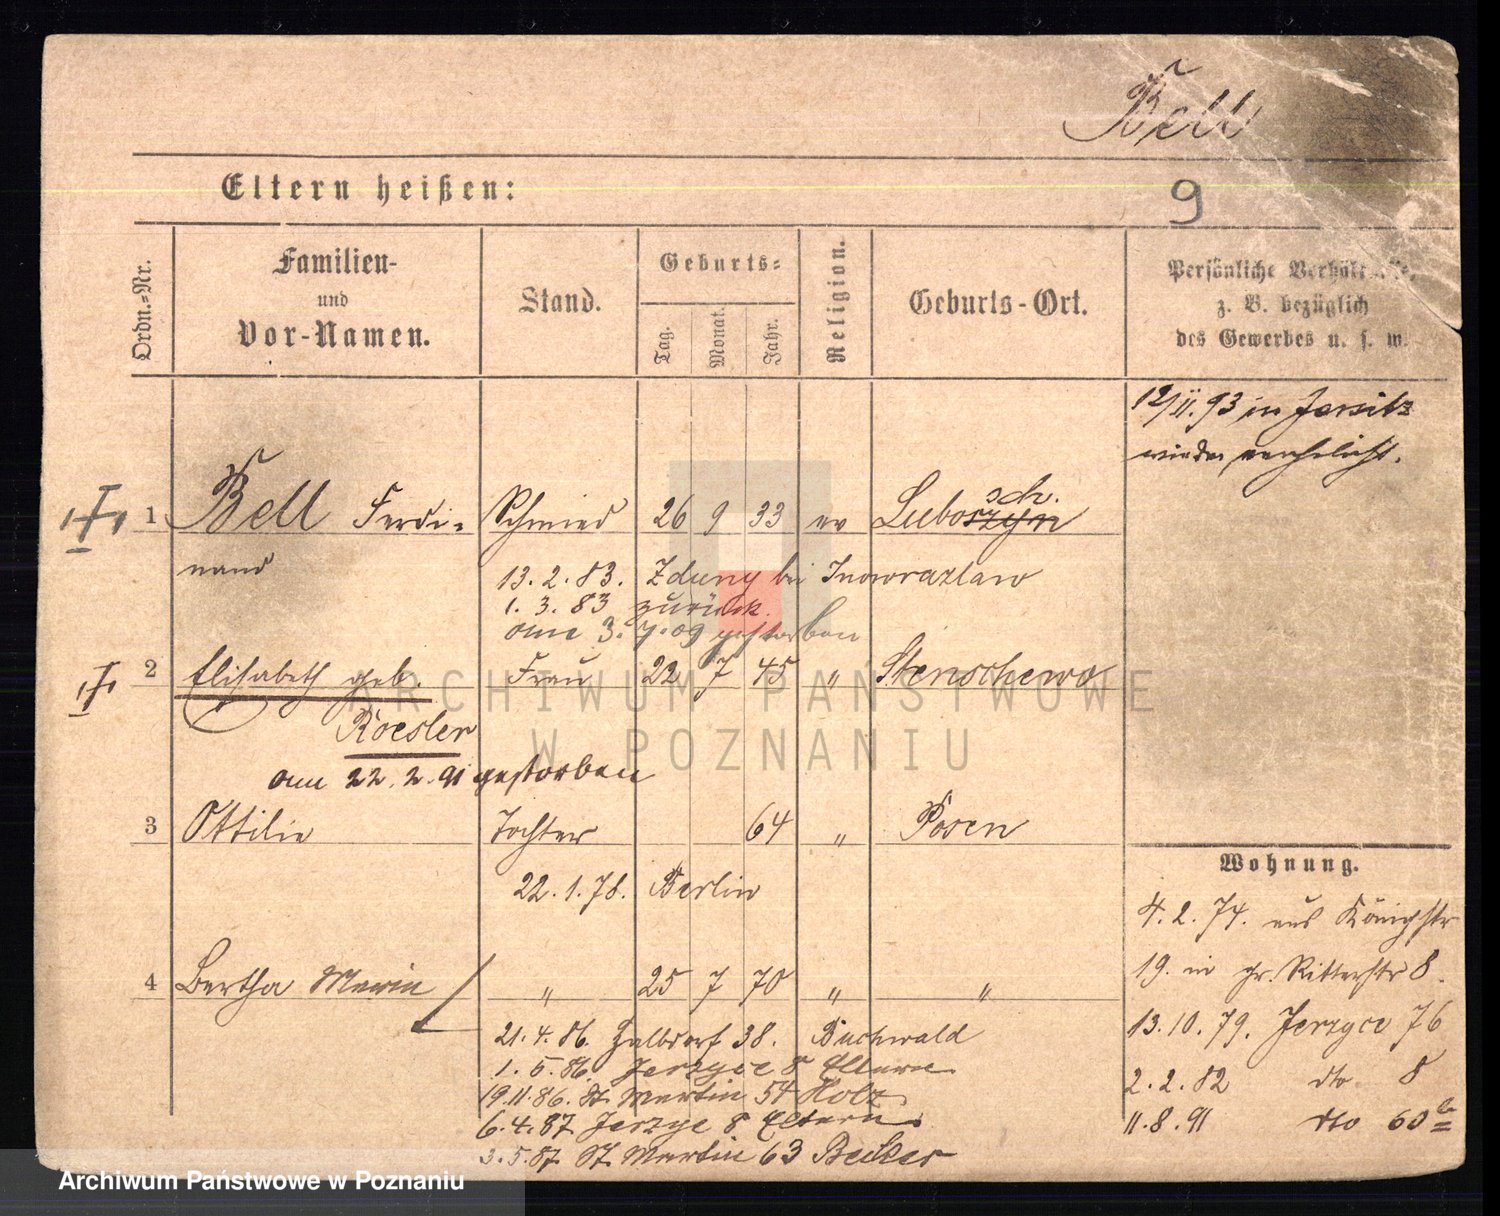 Bell
Eltern heißen:
9
Ordn.-Nr.
Familien-
und
Vor-Namen.
Stand.
Geburts-
Tag.
Monat.
Jahr.
Religion.
Geburts-Ort.
Persönliche Verhältnisse,
z. B. bezüglich
des Gewerbes u. s. w.
12/11.93 in Jersitz
wieder verehelicht.
1 Bell Ferdi- Schmied 26 9 33 ev Luboszyn sch.
nand
13.2.83. Zduny bei Inowrazlaw
1.3.83 zurück.
am 3.7.09 gestorben
2 Elisabeth geb. Frau 22 7 45 " Stenschewo
Roesler
am 22.2.91 gestorben
3 Ottilie Tochter 64 " Posen
22.1.78. Berlin
4 Bertha Marie " 25 7 70 " "
21.4.86. 38. Buchwald
1.5.86. Jerzyce 8 Eltern
19.11.86. St. Martin 54 Holz
6.4.87 Jerzyce 8 Eltern
3.5.87 St. Martin 63 Becker
Wohnung.
4.2.74. aus Königstr
19. in gr. Ritterstr 8.
13.10.79. Jerzyce 76
2.2.82 dto 8
11.8.91 dto 60a
ARCHIWUM PAŃSTWOWE
W POZNANIU
Archiwum Państwowe w Poznaniu